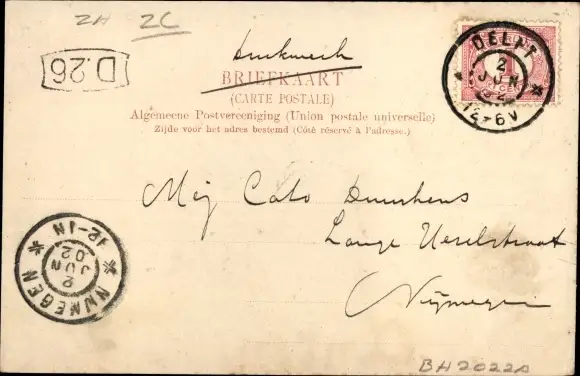 2A 2C
Drukwerk
D.26
BRIEFKAART
(CARTE POSTALE)
Algemeene Postvereeniging (Union postale universelle)
Zijde voor het adres bestemd (Côté réservé à l'adresse.)
DELFT
2
JUN
02
12-6V
Mej Cato
Lange Ueselstraat
Nijmegen
NIJMEGEN
2
JUN
02
12-1N
BH2022A